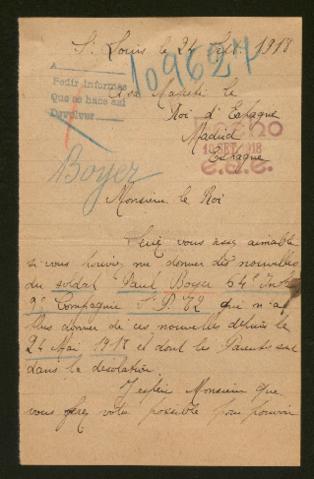 St Louis le 24 1918
109624
A
Pedir informes
Que se hace así
Devolver
A sa Majesté le
Roi d'Espagne
Madrid
Espagne
10 SET. 1918
Boyer
Monsieur le Roi
Seriez vous assez aimable
si vous pouviez me donner des nouvelles
du soldat Paul Boyer 54e Inf
9e Compagnie S.P. 72 qui n'a
plus donner de ces nouvelles depuis le
24 Mai 1918 et dont les Parents sont
dans la desolation.
J'espère Monsieur que
vous ferez votre possible pour pouvoir